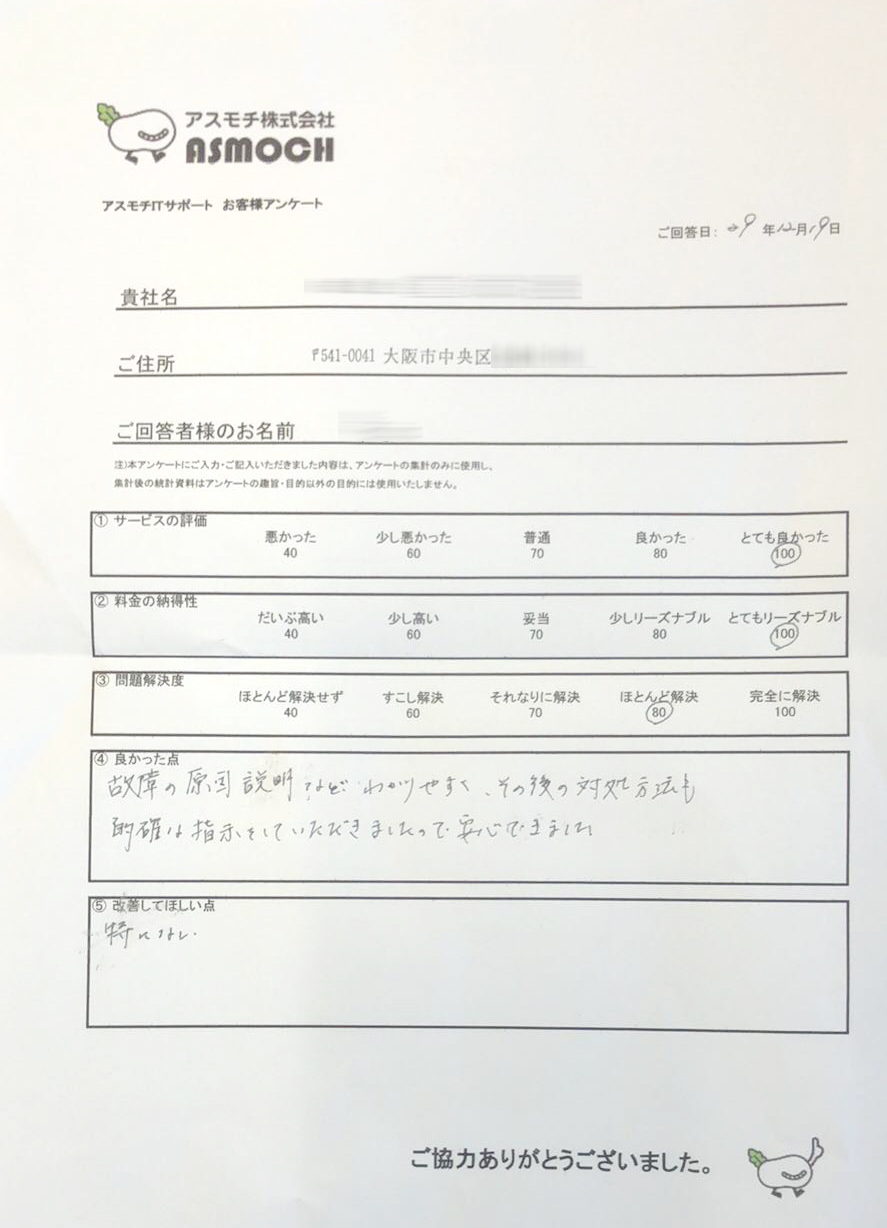 アスモチ株式会社
ASMOCH
アスモチITサポート お客様アンケート
ご回答日: 29 年12月19日
貴社名
ご住所 〒541-0041 大阪市中央区
ご回答者様のお名前
注)本アンケートにご入力・ご記入いただきました内容は、アンケートの集計のみに使用し、
集計後の統計資料はアンケートの趣旨・目的以外の目的には使用いたしません。
① サービスの評価
悪かった 少し悪かった 普通 良かった とても良かった
40 60 70 80 100
② 料金の納得性
だいぶ高い 少し高い 妥当 少しリーズナブル とてもリーズナブル
40 60 70 80 100
③ 問題解決度
ほとんど解決せず すこし解決 それなりに解決 ほとんど解決 完全に解決
40 60 70 80 100
④ 良かった点
故障の原因説明などわかりやすく、その後の対処方法も
的確な指示をしていただきましたので安心できました
⑤ 改善してほしい点
特になし.
ご協力ありがとうございました。